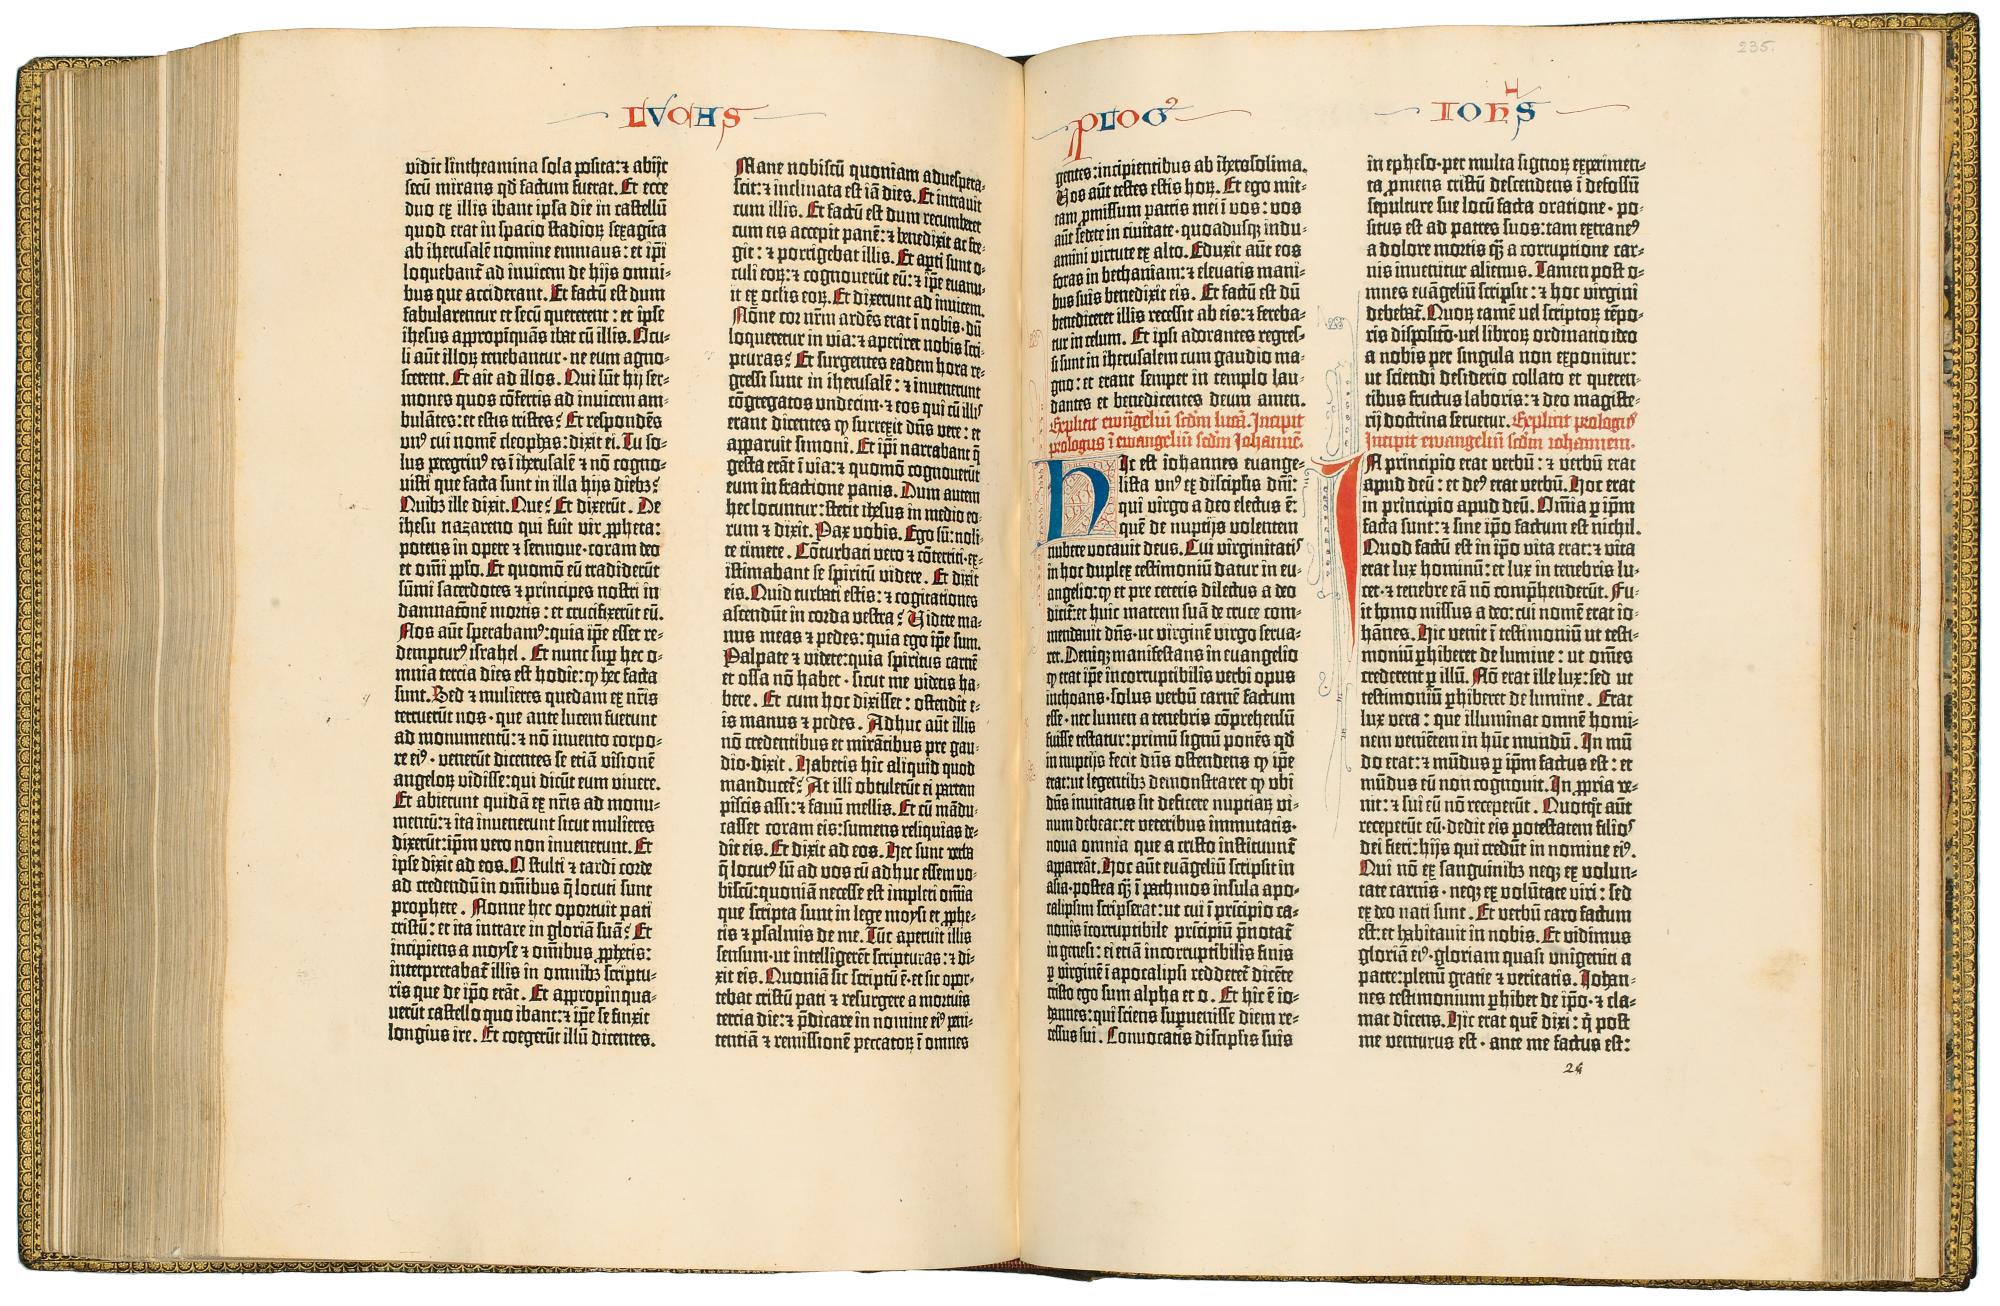 LVCAS
vidit lintheamina sola posita: ⁊ abijt
secū mirans qd̄ factum fuerat. Et ecce
duo ex illis ibant ipsa die in castellū
quod erat in spacio stadioꝝ sexaginta
ab iherusalē nomine emmaus: et ip̄i
loquebant̄ ad invicem de hijs omni-
bus que acciderant. Et factū est dum
fabularentur et secū quererent: et ipse
ihesus appropīquās ibat cū illis. Ocu-
li aūt illoꝝ tenebantur · ne eum agno-
scerent. Et ait ad illos. Qui sūt hij ser-
mones quos cōfertis ad invicem am-
bulātes: et estis tristes? Et respondēs
unꝰ cui nomē cleophas: dixit ei. Tu so-
lus peregrinꝰ es ī iherusalē ⁊ nō cogno-
visti que facta sunt in illa hijs diebꝫ?
Quibꝫ ille dixit. Que? Et dixerūt. De
ihesu nazareno qui fuit vir ꝓpheta:
potens in opere ⁊ sermone · coram deo
et om̄i pplo. Et quomō eū tradiderūt
sūmi sacerdotes ⁊ principes nostri in
damnatōnē mortis: et crucifixerūt eū.
Nos aūt sperabamꝰ: quia ip̄e esset re-
dempturꝰ israhel. Et nunc suꝑ hec o-
mnia tercia dies est hodie: ꝙ hec facta
sunt. Sed ⁊ mulieres quedam ex nr̄is
terruerūt nos · que ante lucem fuerunt
ad monumentū: ⁊ nō invento corpo-
re eiꝰ · venerūt dicentes se etiā visionē
angeloꝝ vidisse: qui dicūt eum vivere.
Et abierunt quidā ex nr̄is ad monu-
mentū: ⁊ ita invenerunt sicut mulieres
dixerūt: ip̄m vero non invenerunt. Et
ipse dixit ad eos. O stulti ⁊ tardi corde
ad credendū in om̄ibus q̄ locuti sunt
prophete. Nonne hec oportuit pati
cristū: et ita intrare in gloriā suā? Et
incipiens a moyse ⁊ om̄ibus ꝓphetis:
interpretabat̄ illis in omnibꝫ scriptu-
ris que de ip̄o erāt. Et appropinqua-
verūt castello quo ibant: ⁊ ip̄e se finxit
longius ire. Et coegerūt illū dicentes.
Mane nobiscū quoniam advespera-
scit: ⁊ inclinata est iā dies. Et intravit
cum illis. Et factū est dum recumberet
cum eis accepit panē: ⁊ benedixit ac fre-
git: ⁊ porrigebat illis. Et aꝑti sunt o-
culi eoꝝ: ⁊ cognoverūt eū: ⁊ ip̄e evanu-
it ex oclis eoꝝ. Et dixerunt ad invicem.
Nōne cor nr̄m ardēs erat ī nobis · dū
loqueretur in via: ⁊ aperiret nobis scri-
pturas? Et surgentes eadem hora re-
gressi sunt in iherusalē: ⁊ invenerunt
cōgregatos undecim · ⁊ eos qui cū illis
erant dicentes ꝙ surrexit dn̄s vere: et
apparuit simoni. Et ip̄i narrabant q̄
gesta erāt ī via: ⁊ quomō cognoverūt
eum in fractione panis. Dum autem
hec locuntur: stetit ihesus in medio eo-
rum ⁊ dixit. Pax vobis. Ego sū: noli-
te timere. Cōturbati vero ⁊ cōterriti · ex-
istimabant se spiritū videre. Et dixit
eis. Quid turbati estis: ⁊ cogitationes
ascendūt in corda vestra? Videte ma-
nus meas ⁊ pedes: quia ego ip̄e sum.
Palpate ⁊ videte: quia spiritus carnē
et ossa nō habet · sicut me videtis ha-
bere. Et cum hoc dixisset: ostendit e-
is manus ⁊ pedes. Adhuc aūt illis
nō credentibus et mirātibus pre gau-
dio · dixit. Habetis hic aliquid quod
manducet̄? At illi obtulerūt ei partem
piscis assi: ⁊ favū mellis. Et cū mādu-
casset coram eis: sumens reliquias de-
dit eis. Et dixit ad eos. Hec sunt verba
q̄ locutꝰ sū ad vos cū adhuc essem vo-
biscū: quoniā necesse est impleri om̄ia
que scripta sunt in lege moysi et ꝓphe-
tis ⁊ psalmis de me. Tūc aperuit illis
sensum · ut intelligerēt scripturas: ⁊ di-
xit eis. Quoniā sic scriptū ē · et sic opor-
tebat cristū pati ⁊ resurgere a mortuis
tercia die: ⁊ p̄dicare in nomine eiꝰ peni-
tentiā ⁊ remissionē peccatoꝝ ī omnes
PLOGꝰ
IOHS
235.
gentes: incipientibus ab iherosolima.
Vos aūt testes estis hoꝝ. Et ego mit-
tam ꝓmissum patris mei ī vos: vos
aūt sedete in civitate · quoadusqꝫ indu-
amini virtute ex alto. Eduxit aūt eos
foras in bethaniam: ⁊ elevatis mani-
bus suis benedixit eis. Et factū est dū
benediceret illis recessit ab eis: ⁊ fereba-
tur in celum. Et ipsi adorantes regres-
si sunt in iherusalem cum gaudio ma-
gno: et erant semper in templo lau-
dantes et benedicentes deum amen.
Explicit ewāgeliū scdm lucā. Incipit
prologus ī ewangeliū scdm Johannē.
Hic est iohannes evange-
lista unꝰ ex disciplis dn̄i:
qui virgo a deo electus ē:
quē de nuptijs volentem
nubere vocavit deus. Cui virginitatis
in hoc duplex testimoniū datur in eu-
angelio: ꝙ et pre ceteris dilectus a deo
dicit̄: et huic matrem suā de cruce com-
mendavit dn̄s · ut virginē virgo serva-
ret. Deniqꝫ manifestans in evangelio
ꝙ erat ip̄e incorruptibilis verbi opus
inchoans · solus verbū carnē factum
esse · nec lumen a tenebris cōprehensū
fuisse testatur: primū signū ponēs qd̄
in nuptijs fecit dn̄s ostendens ꝙ ip̄e
erat: ut legentibꝫ demonstraret ꝙ ubi
dn̄s invitatus sit deficere nuptiaꝝ vi-
num debeat: et veteribus immutatis ·
nova omnia que a cristo instituunt̄
appareāt. Hoc aūt evāgeliū scripsit in
asia · postea qꝫ ī pathmos insula apo-
calipsim scripserat: ut cui ī prīcipio ca-
nonis īcorruptibile prīcipiū p̄notat̄
in genesi: ei etiā incorruptibilis finis
ꝑ virginē ī apocalipsi redderet̄ dicēte
cristo ego sum alpha et o. Et hic ē io-
hannes: qui sciens suꝑvenisse diem re-
cessus sui. Convocatis disciplis suis
in epheso · per multa signoꝝ experimen-
ta ꝓmens cristū descendens ī defossū
sepulture sue locū facta oratione · po-
situs est ad patres suos: tam extraneꝰ
a dolore mortis qꝫ a corruptione car-
nis invenitur alienus. Tamen post o-
mnes evāgeliū scripsit: ⁊ hoc virgini
debebat̄. Quoꝝ tamē vel scriptoꝝ tēpo-
ris dispositō · vel libroꝝ ordinatio ideo
a nobis per singula non exponitur:
ut sciendi desiderio collato et queren-
tibus fructus laboris: ⁊ deo magiste-
rij doctrina servetur. Explicit prologus
Incipit ewangeliū scdm iohannem.
In principio erat verbū: ⁊ verbū erat
apud deū: et deꝰ erat verbū. Hoc erat
in principio apud deū. Om̄ia ꝑ ip̄m
facta sunt: ⁊ sine ip̄o factum est nichil.
Quod factū est in ip̄o vita erat: ⁊ vita
erat lux hominū: et lux in tenebris lu-
cet · ⁊ tenebre eā nō comp̄henderūt. Fu-
it homo missus a deo: cui nomē erat io-
hānes. Hic venit ī testimoniū ut testi-
moniū ꝑhiberet de lumine: ut om̄es
crederent ꝑ illū. Nō erat ille lux: sed ut
testimoniū ꝑhiberet de lumine. Erat
lux vera: que illuminat omnē homi-
nem veniētem in hūc mundū. In mū-
do erat: ⁊ mūdus ꝑ ip̄m factus est: et
mūdus eū non cognovit. In ꝓpria ve-
nit: ⁊ sui eū nō receperūt. Quotqꝫ aūt
receperūt eū · dedit eis potestatem filios
dei fieri: hijs qui credūt in nomine eiꝰ.
Qui nō ex sanguinibꝫ neqꝫ ex volun-
tate carnis · neqꝫ ex volūtate viri: sed
ex deo nati sunt. Et verbū caro factum
est: et habitavit in nobis. Et vidimus
gloriā eiꝰ · gloriam quasi unigeniti a
patre: plenū gratie ⁊ veritatis. Johan-
nes testimonium ꝑhibet de ip̄o · ⁊ cla-
mat dicens. Hic erat quē dixi: q̄ post
me venturus est · ante me factus est:
24